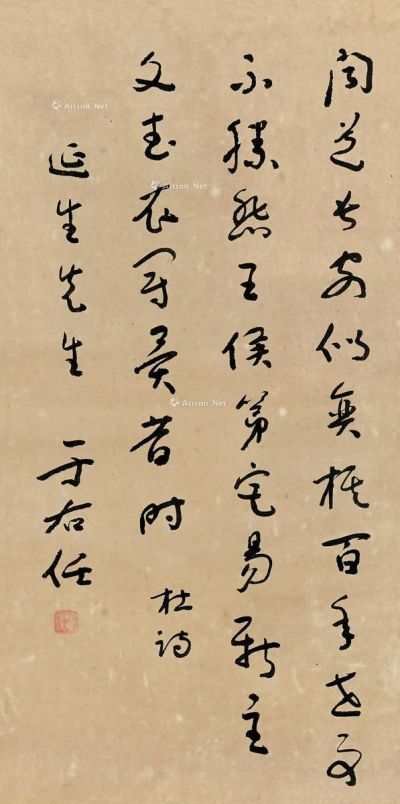 闻道长安似奕棋百年世事
不胜悲王侯第宅易新主
文武衣冠异昔时 杜诗
延生先生 于右任
Artron.Net
Artron.Net
Artron.Net
Artron.Net